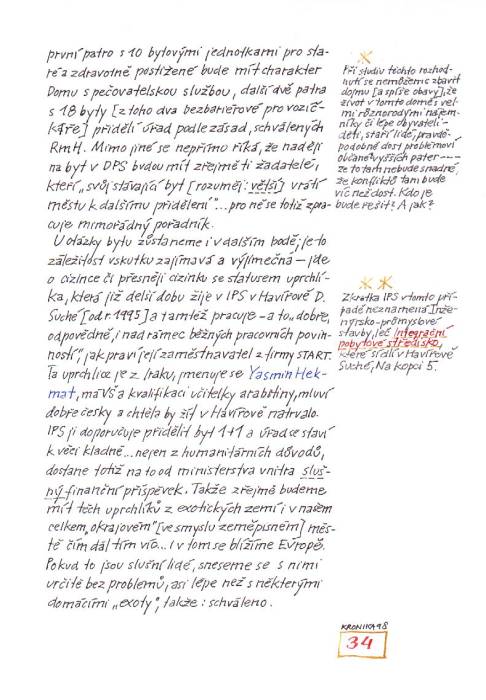 první patro s 10 bytovými jednotkami pro sta-
ré a zdravotně postižené bude mít charakter
Domu s pečovatelskou službou, další dvě patra
s 18 byty [z toho dva bezbariérové pro vozíč-
káře] přidělí úřad podle zásad, schválených
RmH. Mimo jiné se nepřímo říká, že naději
na byt v DPS budou mít zřejmě ti žadatelé,
kteří „svůj stávající byt [rozuměj: větší] vrátí
městu k dalšímu přidělení"... pro ně se totiž zpra-
cuje mimořádný pořadník.
U otázky bytu zůstaneme i v dalším bodě, je to
záležitost vskutku zajímavá a výjimečná – jde
o cizince či přesněji cizinku se statusem uprchlí-
ka, která již delší dobu žije v IPS v Havířově D.
Suché [od r. 1995] a tamtéž pracuje – a to „dobře,
odpovědně, i nad rámec běžných pracovních povin-
ností", jak praví její zaměstnavatel z firmy START.
Ta uprchlice je z Iráku, jmenuje se Yasmin Hek-
mat, má VŠ a kvalifikaci učitelky arabštiny, mluví
dobře česky a chtěla by žít v Havířově natrvalo.
IPS jí doporučuje přidělit byt 1+1 a úřad se staví
k věci kladně... nejen z humanitárních důvodů,
dostane totiž na to od ministerstva vnitra sluš-
ný finanční příspěvek. Takže zřejmě budeme
mít těch uprchlíků z exotických zemí i v našem
celkem „okrajovém" [ve smyslu zeměpisném] měs-
tě čím dál tím víc... i v tom se blížíme Evropě.
Pokud to jsou slušní lidé, sneseme se s nimi
určitě bez problémů, asi lépe než s některými
domácími „exoty", takže: schváleno.
Při studiu těchto rozhod-
nutí se nemůžeme zbavit
dojmu [a spíše obavy], že
život v tomto domě s vel-
mi různorodými nájem-
níky či lépe obyvateli –
děti, staří lidé, pravdě-
podobně dost problémoví
občané vyšších pater ----
že to tam nebude snadné,
že konfliktů tam bude
víc než dost. Kdo je
bude řešit? A jak?
Zkratka IPS v tomto pří-
padě neznamená Inže-
nýrsko-průmyslové
stavby, leč Integrační
pobytové středisko,
které sídlí v Havířově
Suché, Na kopci 5.
KRONIKA 98
34